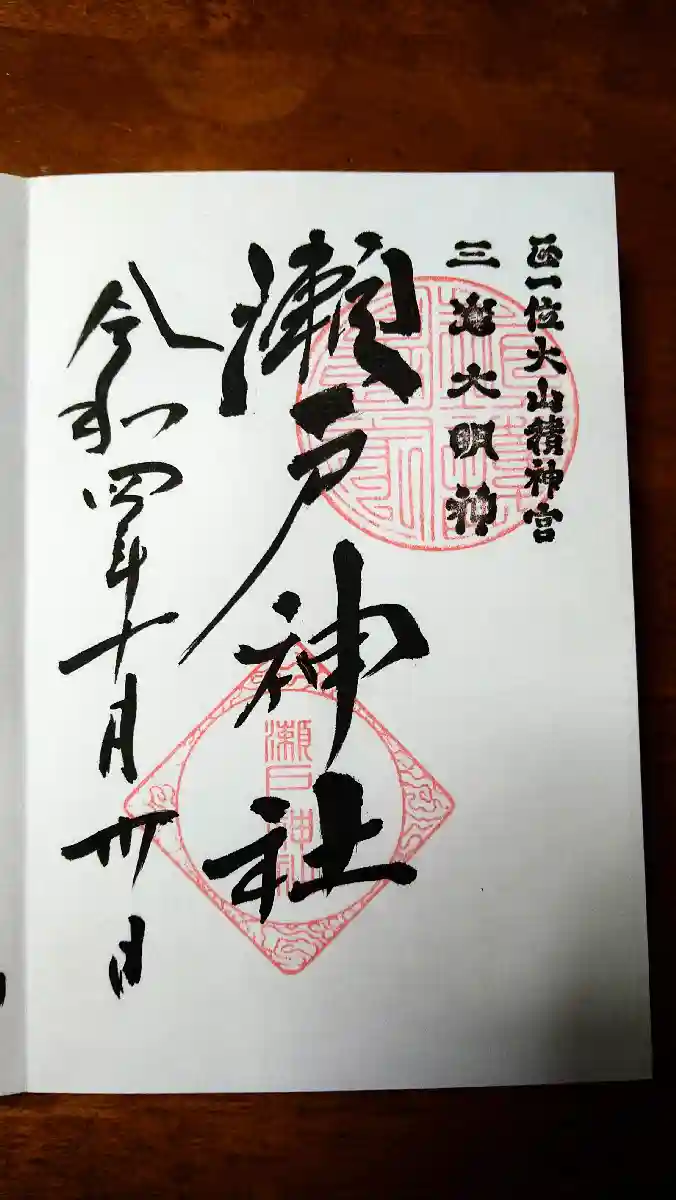 正一位大山積神宮
三嶌大明神
瀬戸神社
令和四年十月卅日
瀬戸神社